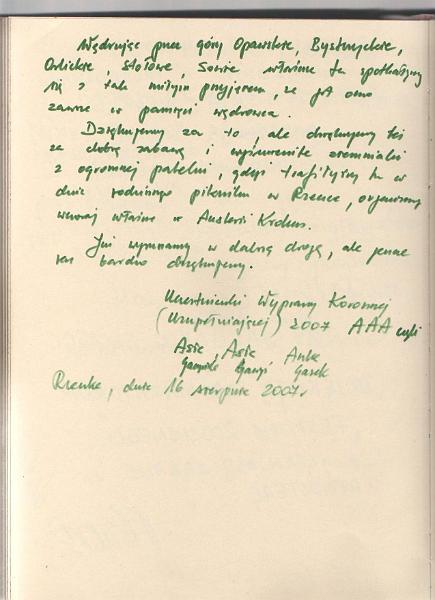 Wędrując przez góry Opawskie, Bystrzyckie,
Orlickie, Stołowe, Sowie właśnie tu spotkałyśmy
się z tak miłym przyjęciem, że jest ono
zawsze w pamięci wędrowca.
Dziękujemy za to, ale dziękujemy też
za dobrą zabawę i wyśmienite ziemniaki
z ogromnej patelni, gdyż trafiłyśmy tu w
dniu rodzinnego pikniku w Rzeczce, organizowany
wczoraj właśnie w Austerii Krokus.
Już wyruszamy w dalszą drogę, ale jeszcze
raz bardzo dziękujemy.
Uczestniczki Wyprawy Koronnej
(Uzupełniającej) 2007 AAA czyli
Asia, Asia Anka
Gazela Garek
Rzeczka, dnia 16 sierpnia 2007r